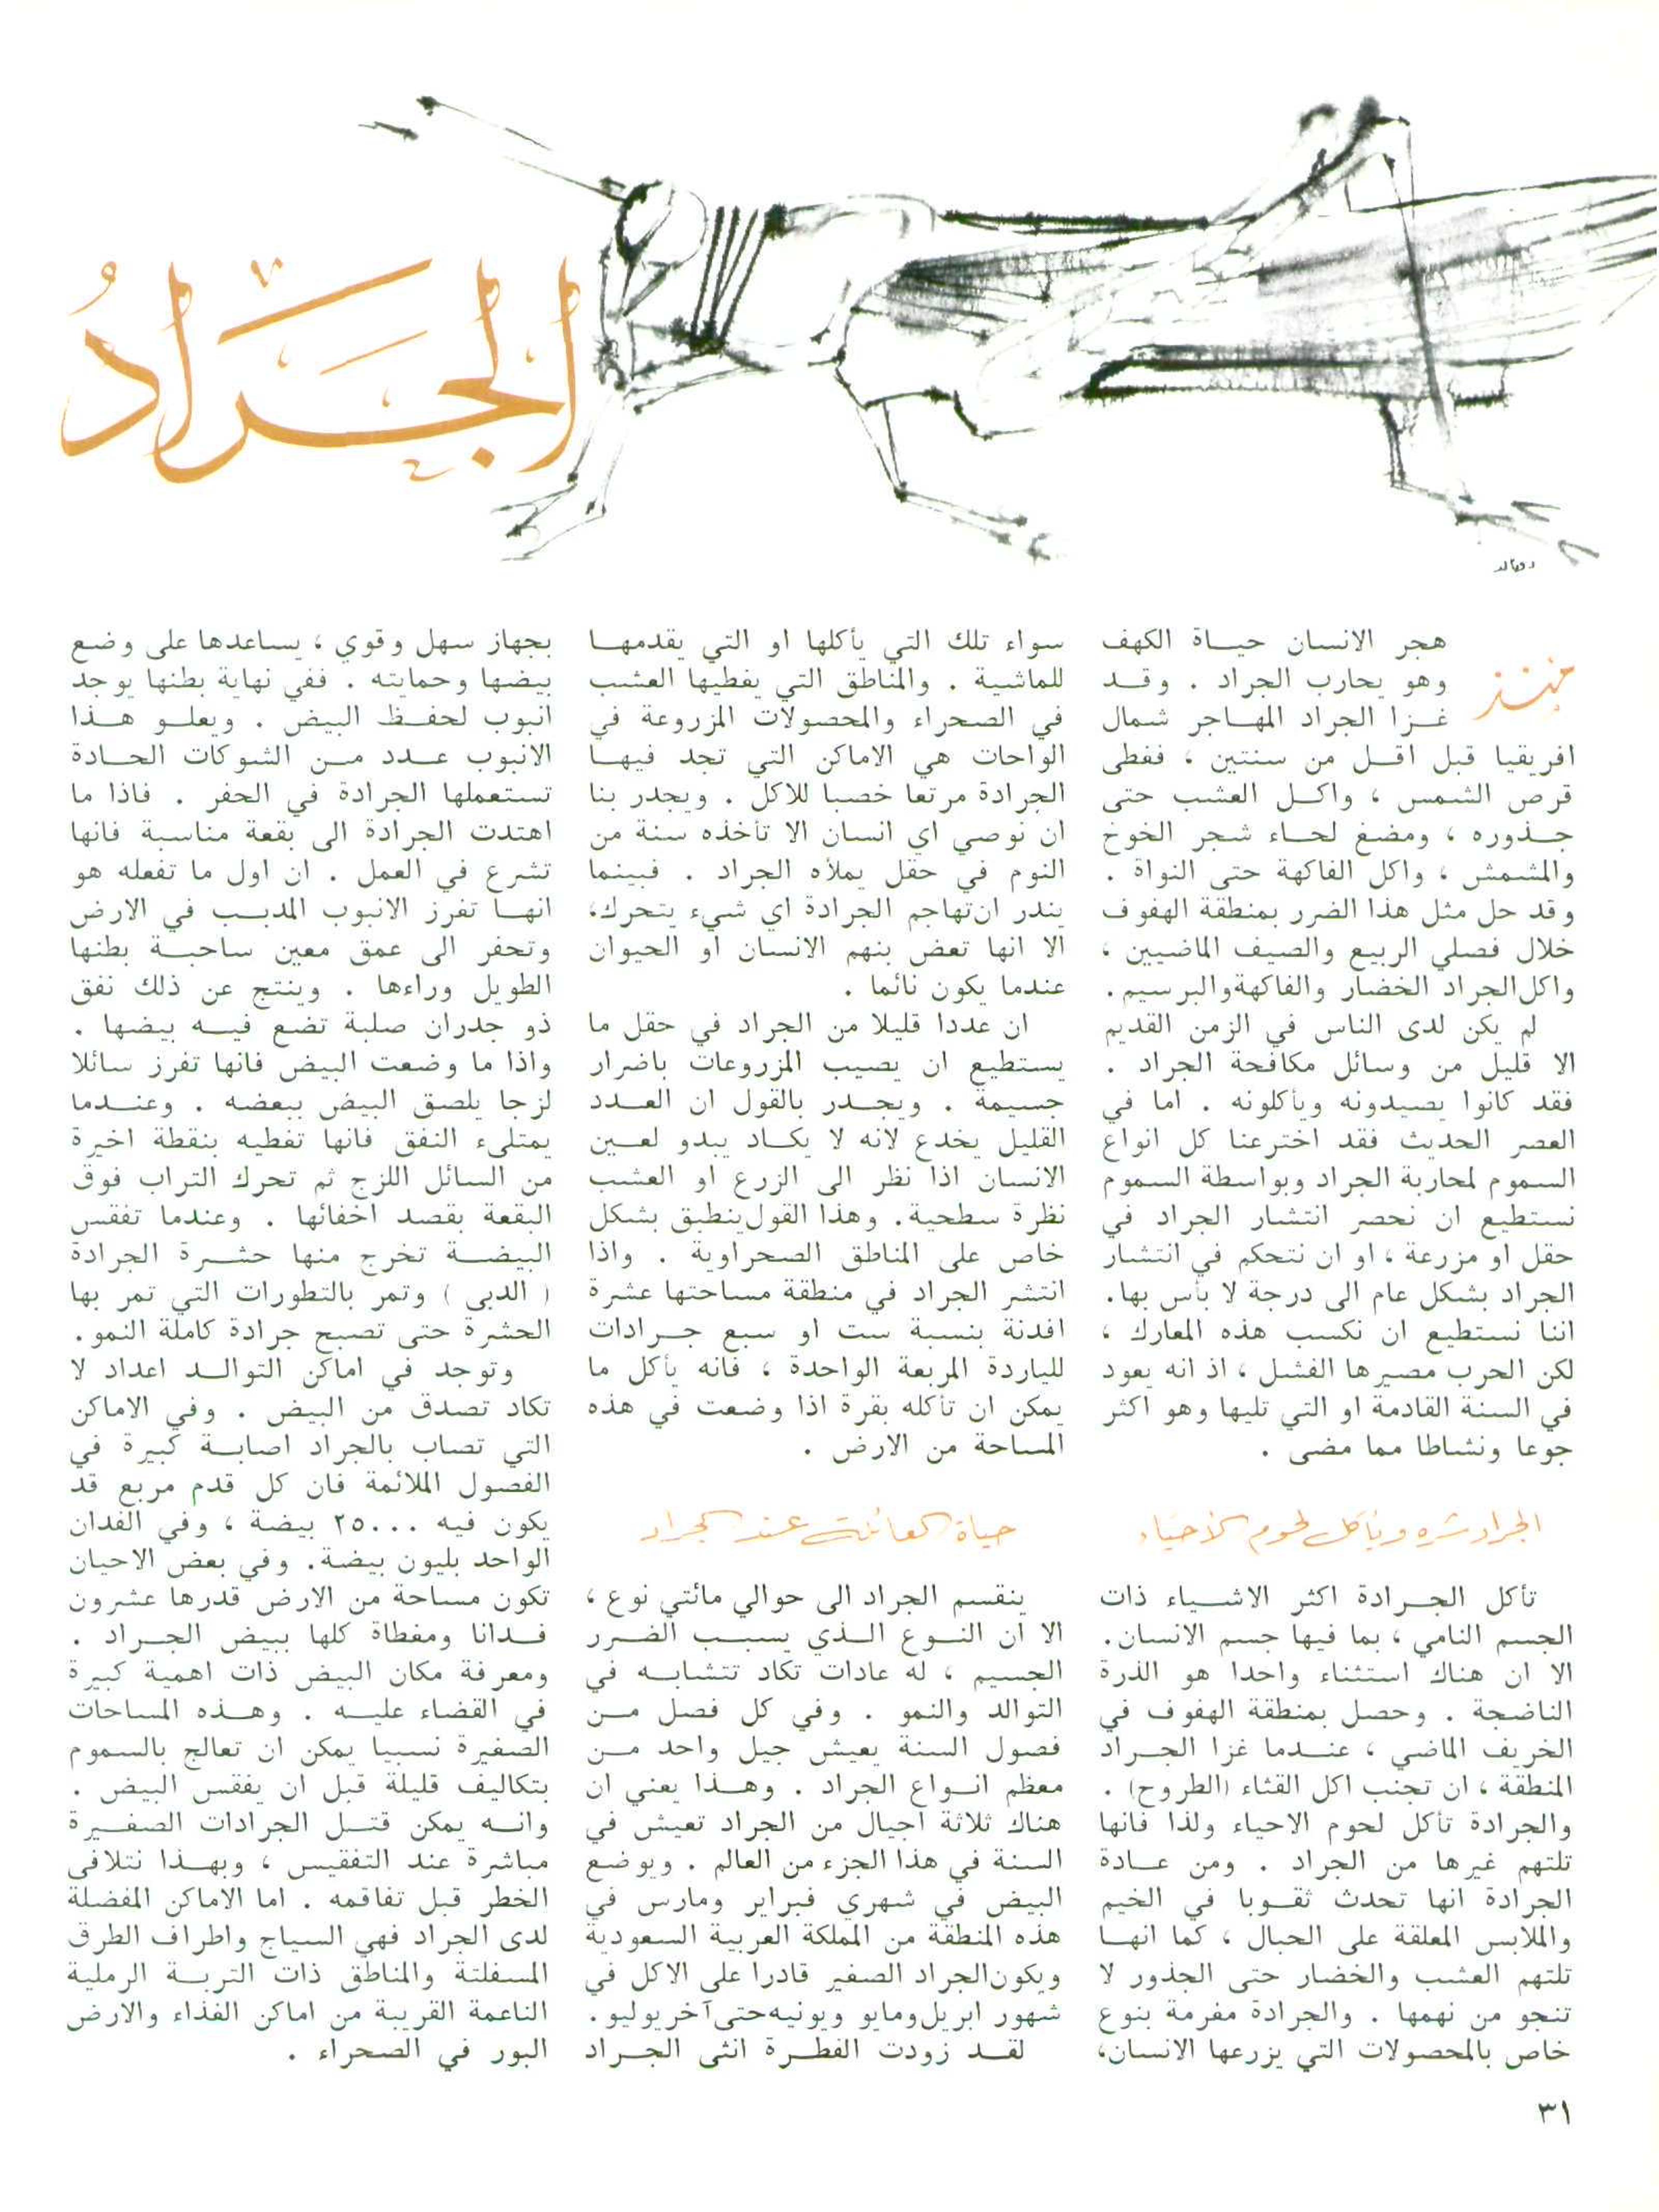 الجَرَادُ
منذ
هجر الانسان حيـــاة الكهف
وهو يحارب الجراد . وقـــد
غـــزا الجراد المهـاجر شمال
افريقيا قبل اقـــل من سنتين ، فغطى
قرص الشمس ، واكـــل العشب حتى
جـــذوره ، ومضغ لحـاء شجر الخوخ
والمشمش ، واكل الفاكهة حتى النواة .
وقد حل مثل هذا الضرر بمنطقة الهفوف
خلال فصلي الربيع والصيف الماضيين ،
واكل الجراد الخضار والفاكهة والبرسيم.
لم يكن لدى الناس في الزمن القديم
الا قليل من وسائل مكافحة الجراد .
فقد كانوا يصيدونه ويأكلونه . اما في
العصر الحديث فقد اخترعنا كل انواع
السموم لمحاربة الجراد وبواسطة السموم
نستطيع ان نحصر انتشار الجراد في
حقل او مزرعة ، او ان نتحكم في انتشار
الجراد بشكل عام الى درجة لا بأس بها.
اننا نستطيع ان نكسب هذه المعارك ،
لكن الحرب مصيرها الفشل ، اذ انه يعود
في السنة القادمة او التي تليها وهو اكثر
جوعا ونشاطا مما مضى .
الجراد شره ويأكل لحوم الأحياء
تأكل الجـــرادة اكثر الاشـــياء ذات
الجسم النامي ، بما فيها جسم الانسان.
الا ان هناك استثناء واحدا هو الذرة
الناضجة . وحصل بمنطقة الهفوف في
الخريف الماضي ، عنـــدما غزا الجـــراد
المنطقة ، ان تجنب اكل القثاء (الطروح) .
والجرادة تأكل لحوم الاحياء ولذا فانها
تلتهم غيرها من الجراد . ومن عـــادة
الجرادة انها تحدث ثقـــوبا في الخيم
والملابس المعلقة على الحبال ، كما انهـــا
تلتهم العشب والخضار حتى الجذور لا
تنجو من نهمها . والجرادة مغرمة بنوع
خاص بالمحصولات التي يزرعها الانسان،
سواء تلك التي يأكلها او التي يقدمهـــا
للماشية . والمناطق التي يغطيها العشب
في الصحراء والمحصولات المزروعة في
الواحات هي الاماكن التي تجد فيهـــا
الجرادة مرتعا خصبا للاكل . ويجدر بنا
ان نوصي اي انسان الا تأخذه سنة من
النوم في حقل يملأه الجراد . فبينما
يندر ان تهاجم الجرادة اي شيء يتحرك،
الا انها تعض بنهم الانسان او الحيوان
عندما يكون نائما .
ان عددا قليلا من الجراد في حقل ما
يستطيع ان يصيب المزروعات باضرار
جسيمة . ويجـــدر بالقول ان العـــدد
القليل يخدع لانه لا يكـاد يبدو لعـــين
الانسان اذا نظر الى الزرع او العشب
نظرة سطحية. وهذا القول ينطبق بشكل
خاص على المناطق الصحراوية . واذا
انتشر الجراد في منطقة مساحتها عشرة
افدنة بنسبة ست او سبع جـــرادات
للياردة المربعة الواحدة ، فانه يأكل ما
يمكن ان تأكله بقرة اذا وضعت في هذه
المساحة من الارض .
حياة العائلة عند الجراد
ينقسم الجراد الى حوالي مائتي نوع ،
الا ان النـــوع الـــذي يسبـــب الضـــرر
الجسيم ، له عادات تكاد تتشابـــه في
التوالد والنمو . وفي كل فصل مـــن
فصول السنة يعيش جيل واحد مـــن
معظم انـــواع الجراد . وهـــذا يعني ان
هناك ثلاثة اجيال من الجراد تعيش في
السنة في هذا الجزء من العالم . ويوضع
البيض في شهري فبراير ومارس في
هذه المنطقة من المملكة العربية السعودية
ويكون الجراد الصغير قادرا على الاكل في
شهور ابريل ومايو ويونيه حتى آخر يوليو.
لقـــد زودت الفطـــرة انثى الجـــراد
بجهاز سهل وقوي ، يساعدها على وضع
بيضها وحمايته . ففي نهاية بطنها يوجد
انبوب لحفـــظ البيض . ويعلـــو هـــذا
الانبوب عـــدد مـــن الشوكات الحـــادة
تستعملها الجرادة في الحفر . فاذا ما
اهتدت الجرادة الى بقعة مناسبة فانها
تشرع في العمل . ان اول ما تفعله هو
انهـــا تغرز الانبوب المدبـــب في الارض
وتحفر الى عمق معين ساحبـــة بطنها
الطويل وراءها . وينتج عن ذلك نفق
ذو جدران صلبة تضع فيـــه بيضها .
واذا ما وضعت البيض فانها تفرز سائلا
لزجا يلصق البيض ببعضه . وعنـــدما
يمتلىء النفق فانها تغطيه بنقطة اخيرة
من السائل اللزج ثم تحرك التراب فوق
البقعة بقصد اخفائها . وعندما تفقس
البيضـــة تخرج منها حشـــرة الجرادة
( الدبى ) وتمر بالتطورات التي تمر بها
الحشرة حتى تصبح جرادة كاملة النمو.
وتوجد في اماكن التوالـــد اعداد لا
تكاد تصدق من البيض . وفي الاماكن
التي تصاب بالجراد اصابـــة كبيرة في
الفصول الملائمة فان كل قدم مربع قد
يكون فيه ٢٥٠٠٠ بيضة ، وفي الفدان
الواحد بليون بيضة. وفي بعض الاحيان
تكون مساحة من الارض قدرها عشرون
فـــدانا ومغطاة كلها ببيض الجـــراد .
ومعرفة مكان البيض ذات اهمية كبيرة
في القضاء عليـــه . وهـــذه المساحات
الصغيرة نسبيا يمكن ان تعالج بالسموم
بتكاليف قليلة قبل ان يفقس البيض .
وانـــه يمكن قتـــل الجرادات الصغـــيرة
مباشرة عند التفقيس ، وبهـــذا نتلافى
الخطر قبل تفاقمه . اما الاماكن المفضلة
لدى الجراد فهي السياج واطراف الطرق
المسفلتة والمناطق ذات التربـــة الرملية
الناعمة القريبة من اماكن الغذاء والارض
البور في الصحراء .
٣١